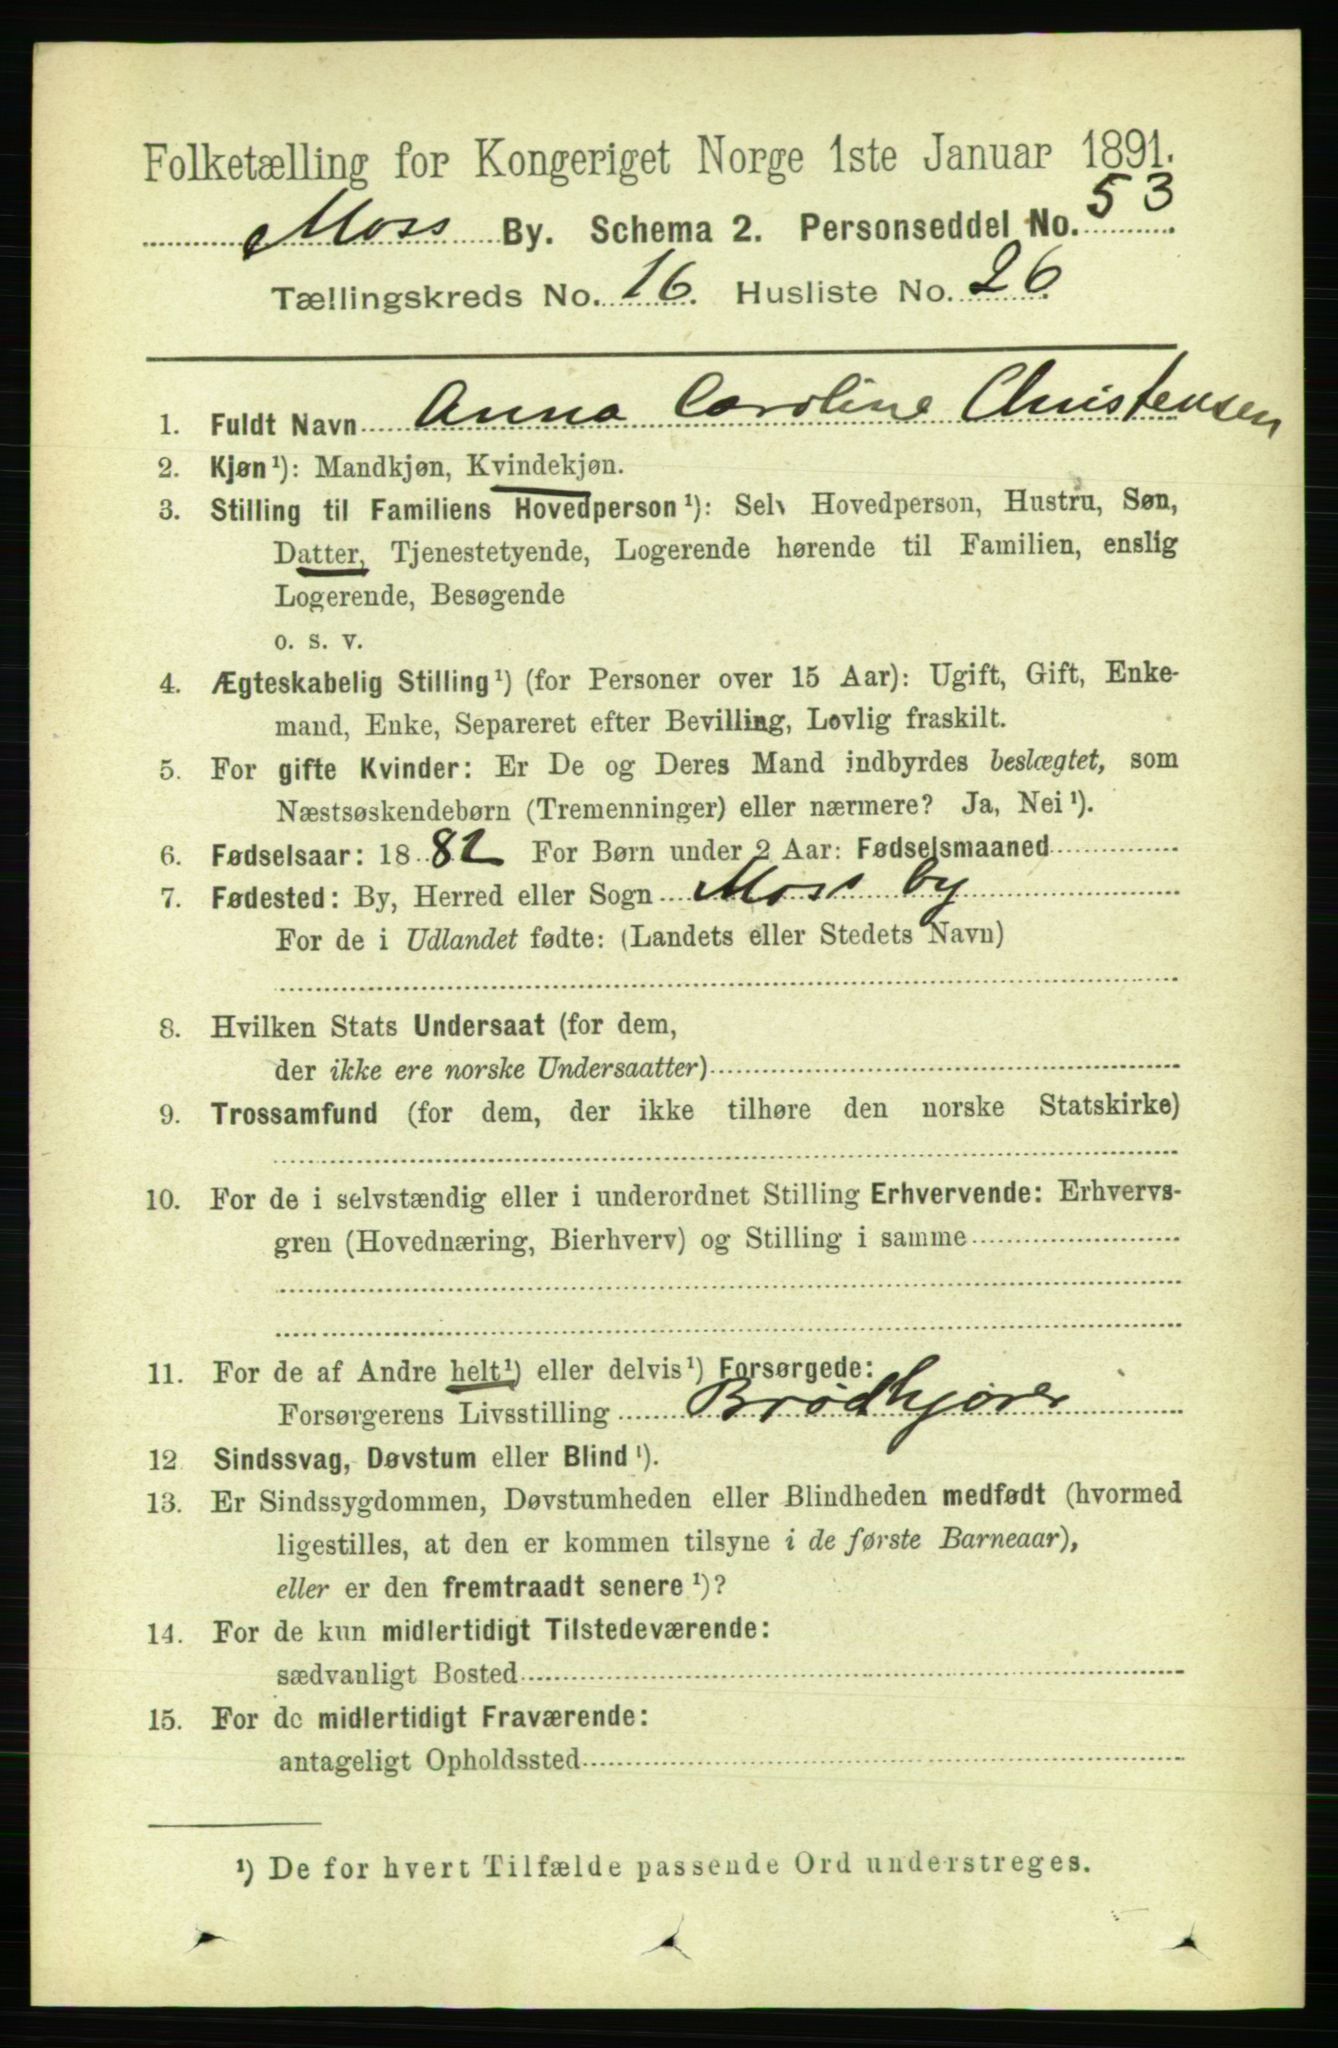 Folketælling for Kongeriget Norge 1ste Januar 1891.
Moss By. Schema 2. Personseddel No. 53
Tællingskreds No. 16. Husliste No. 26.
1. Fuldt Navn Anna Caroline Christensen
2. Kjøn¹): Mandkjøn, Kvindekjøn.
3. Stilling til Familiens Hovedperson¹): Selv Hovedperson, Hustru, Søn,
Datter, Tjenestetyende, Logerende hørende til Familien, enslig
Logerende, Besøgende
o. s. v.
4. Ægteskabelig Stilling¹) (for Personer over 15 Aar): Ugift, Gift, Enke-
mand, Enke, Separeret efter Bevilling, Lovlig fraskilt.
5. For gifte Kvinder: Er De og Deres Mand indbyrdes beslægtet, som
Næstsøskendebørn (Tremenninger) eller nærmere? Ja, Nei¹).
6. Fødselsaar: 1882 For Børn under 2 Aar: Fødselsmaaned
7. Fødested: By, Herred eller Sogn Moss by
For de i Udlandet fødte: (Landets eller Stedets Navn)
8. Hvilken Stats Undersaat (for dem,
der ikke ere norske Undersaatter)
9. Trossamfund (for dem, der ikke tilhøre den norske Statskirke)
10. For de i selvstændig eller i underordnet Stilling Erhvervende: Erhvervs-
gren (Hovednæring, Bierhverv) og Stilling i samme
11. For de af Andre helt¹) eller delvis¹) Forsørgede:
Forsørgerens Livsstilling Brødkjører
12 Sindssvag, Døvstum eller Blind¹).
13. Er Sindssygdommen, Døvstumheden eller Blindheden medfødt (hvormed
ligestilles, at den er kommen tilsyne i de første Barneaar),
eller er den fremtraadt senere¹)?
14. For de kun midlertidigt Tilstedeværende:
sædvanligt Bosted
15. For de midlertidigt Fraværende:
antageligt Opholdssted
¹) De for hvert Tilfælde passende Ord understreges.